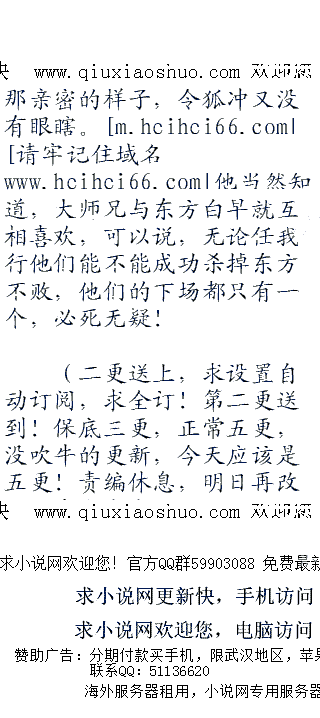 快 www.qiuxiaoshuo.com 欢迎您
那亲密的样子，令狐冲又没
有眼瞎。[m.hcihci66.com|
[请牢记住域名
www.hcihci66.com|他当然知
道，大师兄与东方白早就互
相喜欢，可以说，无论任我
行他们能不能成功杀掉东方
不败，他们的下场都只有一
个，必死无疑！
（二更送上，求设置自
动订阅，求全订！第二更送
到！保底三更，正常五更，
没吹牛的更新，今天应该是
五更！责编休息，明日再改
快 www.qiuxiaoshuo.com 欢迎您
求小说网欢迎您！官方QQ群59903088 免费最新
求小说网更新快，手机访问
求小说网欢迎您，电脑访问
赞助广告：分期付款买手机，限武汉地区，苹果
联系QQ：51136620
海外服务器租用，小说网专用服务器